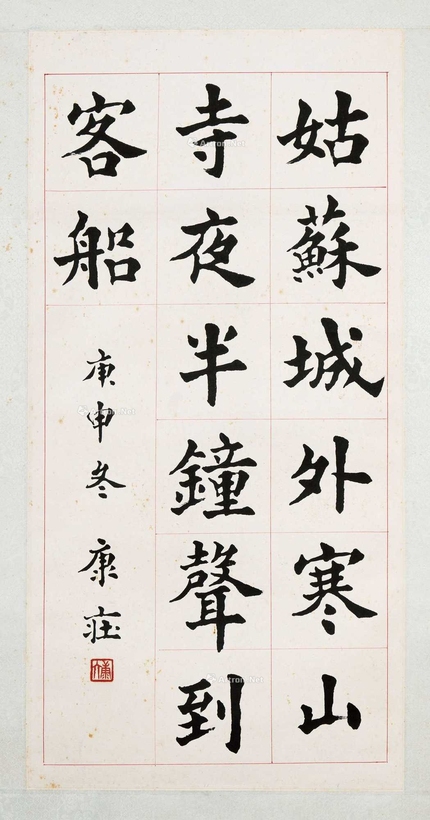 姑蘇城外寒山
寺夜半鐘聲到
客船
庚申冬 康莊